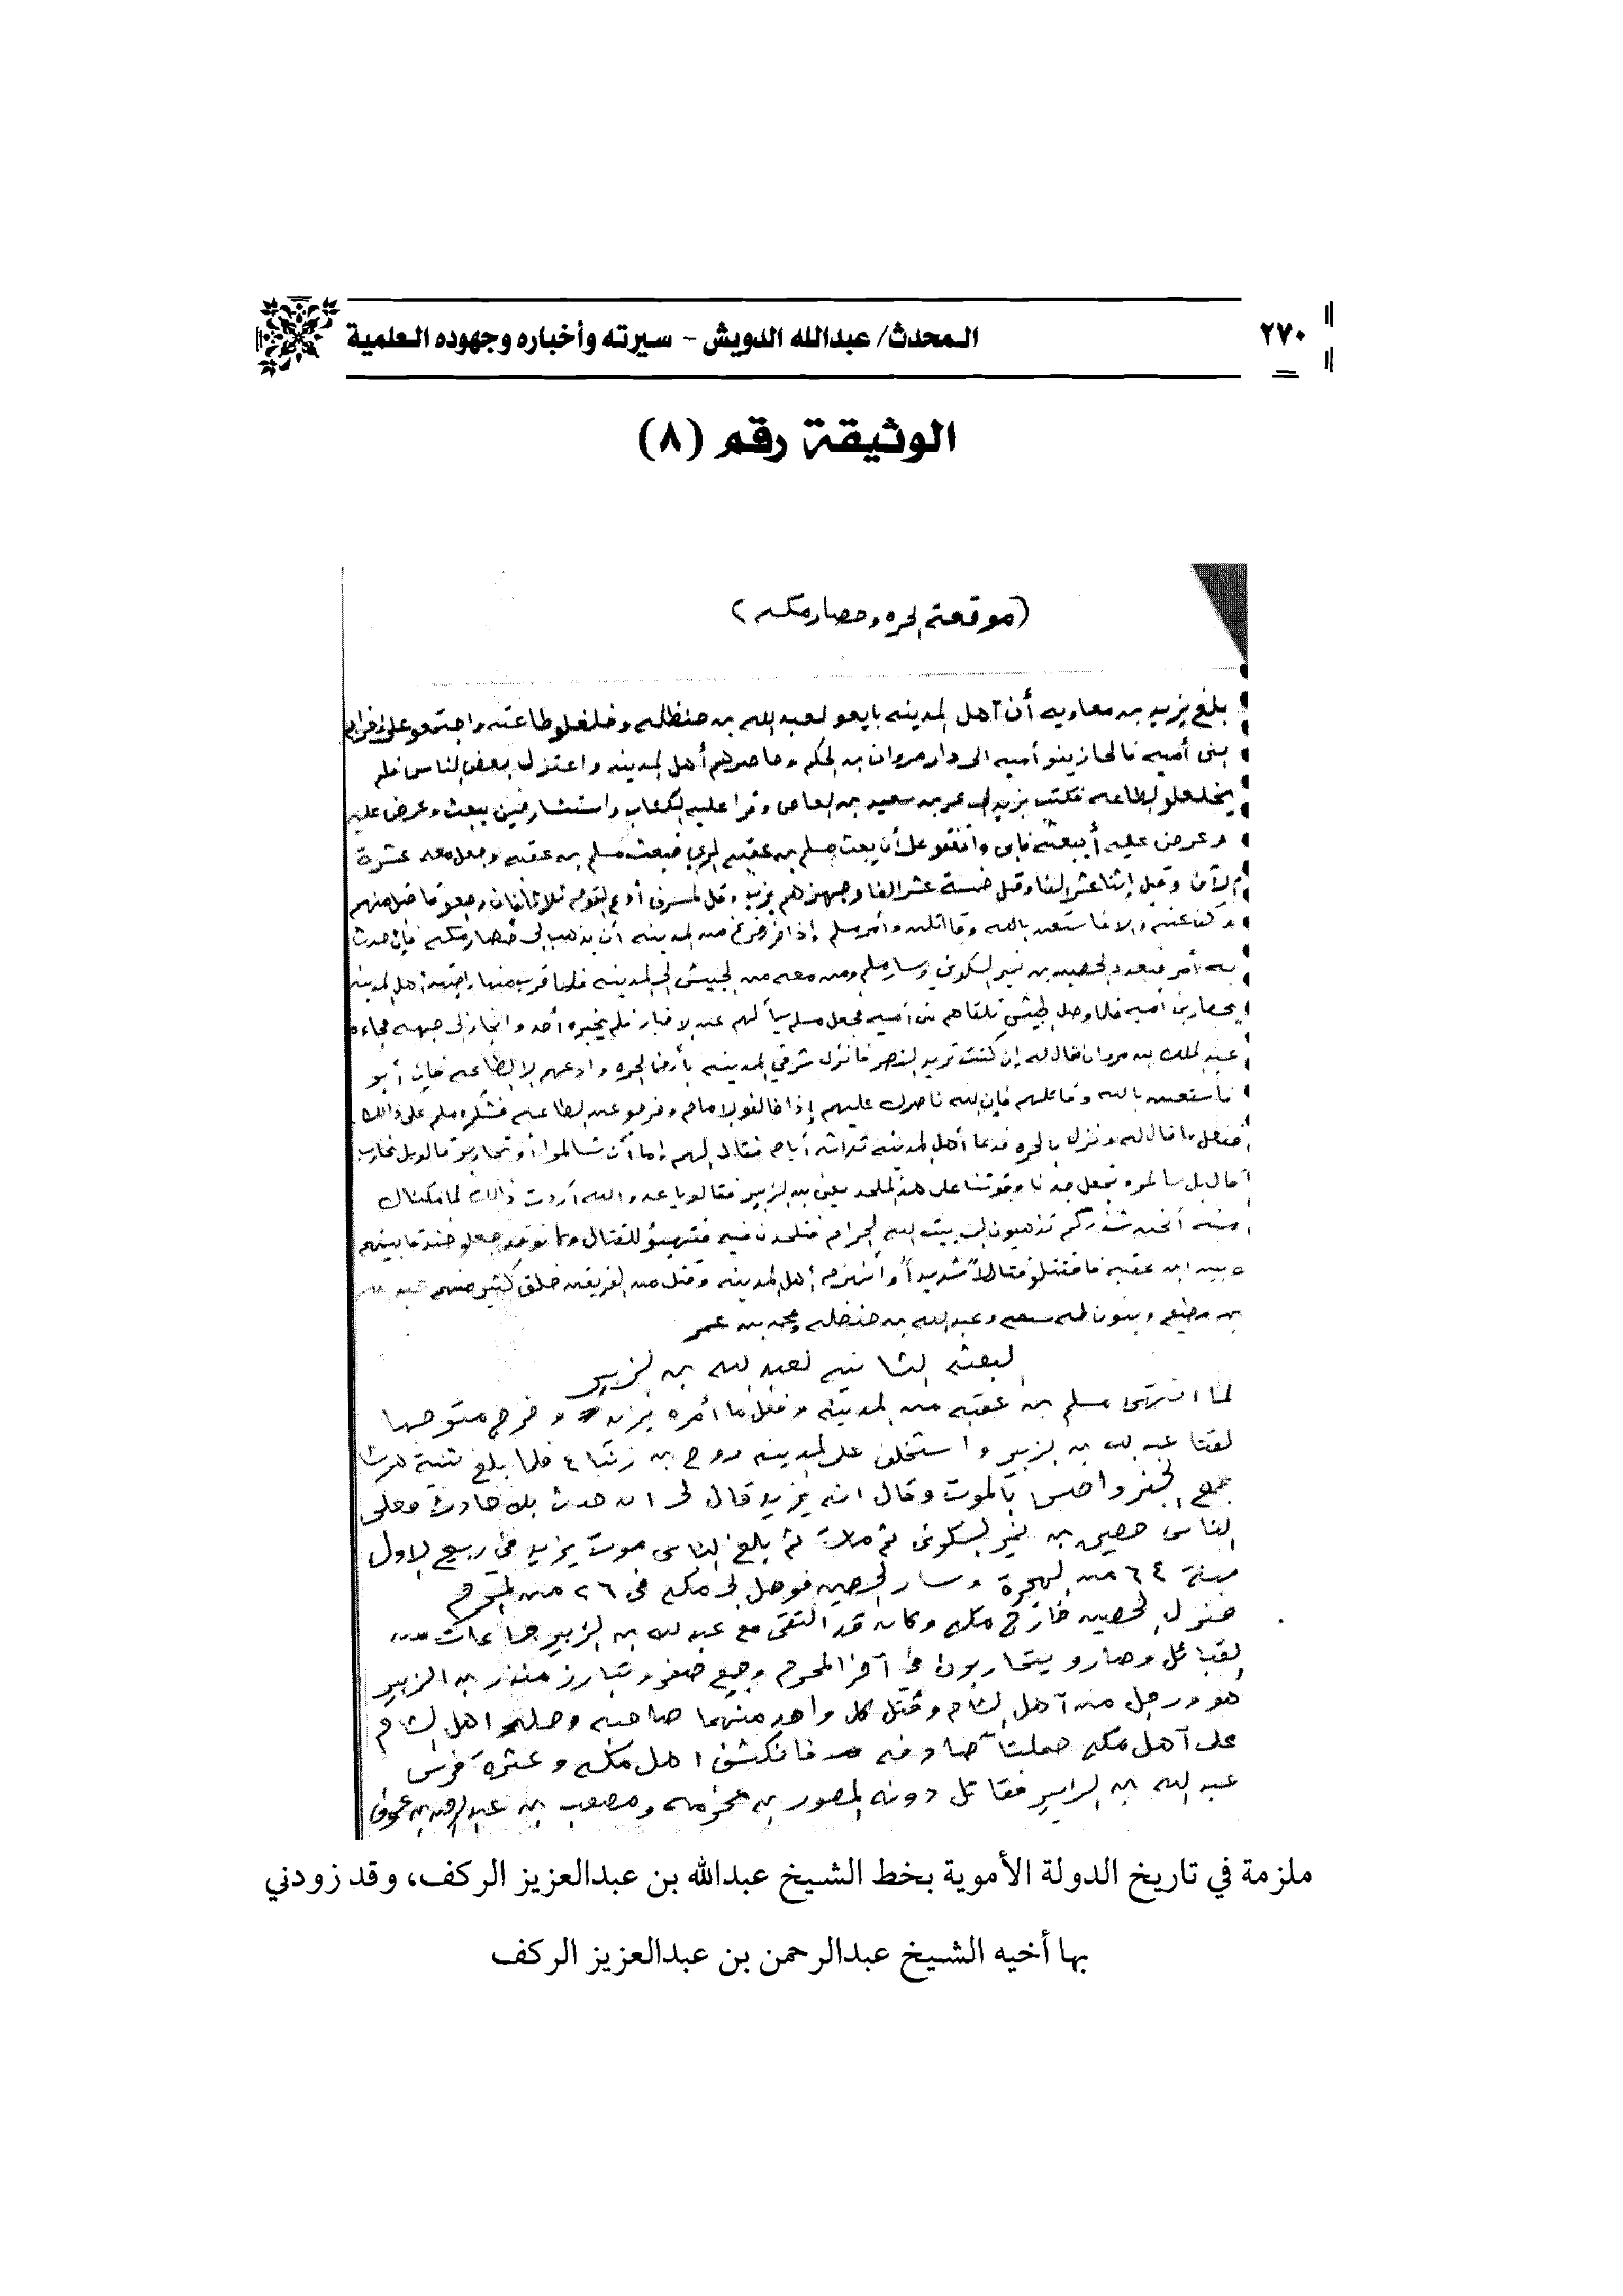 ٢٧٠
المحدث/ عبدالله الدويش - سيرته وأخباره وجهوده العلمية
الوثيقة رقم (٨)
(موقعة الحره وحصار مكه)
بلغ يزيد بن معاويه أن آهل المدينه بايعو لعبد الله بن حنظله وخلعلو طاعته واجتمعو على إخراج
بنى أميه فالحاز بنو أميه الى دار مروان بن الحكم وحاصرهم أهل المدينه واعتزل بعض الناس فلم
يخلعلو الطاعه فكتب يزيد الى عمر بن سعيد بن العاص وقرا عليه الكتاب واستشار فين يبعث وعرض عليه
وعرض عليه أيبعثه فابى واتفقو على أن يبعث مسلم بن عقبه المري فبعث مسلم بن عقبه وجعل معه عشرة
آلآف وقيل إثنا عشر الفا وقيل خمسة عشر الفا وجهزهم يزيد وقل لمسرف أدع القوم ثلاثا فان رجعو فاقبل منهم
وكف عنهم والا فاستعن بالله وقاتلهم وأمر مسلم إذا فرغ من المدينه أن يذهب الى حصار مكه فإن حدث
به أمر فبعده الحصين بن نمير السكوني وسار مسلم ومن معه من الجيش الى المدينه فلما قرب منها إجتهد أهل المدينه
بحصار بنى أميه فلما وصل الجيش تلقاهم بنى أميه فجعل مسلم يسألهم عن الاخبار فلم يخبره أحد وانحاز الى جبهه فجاءه
عبد الملك بن مروان فقال له إن كنت تريد النصر فانزل شرقي المدينه بأرض الحره وادعهم الا الطاعه فإن أبو
فاستعن بالله وقاتلهم فإن الله ناصرك عليهم إذا خالفو الامام وخرجو عن الطاعه فشكره مسلم على ذالك
ففعل ما قال له ونزل بالحره فدعا أهل المدينه ثلاثة أيام فقال لهم إما أن تسالموا أو تحاربو قالو بل نحارب
قال بل سالمو نجعل جدنا وقوتنا على هذ الملحد يعني بن الزبير فقالو يا عدو الله أردت ذالك لما مكناك
منه أنحن نذركم تذهبون الى بيت الله الحرام فتلحدن فيه فتهيئو للقتال وكانو قد جعلو خندقا بينهم
وبين ابن عقبه فاقتتلو قتالاً شديداً وأنهزم أهل المدينه وقتل من الفريقين خلق كثير منهم عبد الله
بن مطيع وبنون له سبعه وعبد الله بن حنظله ومحمد بن عمر
البعثه الثانيه لعبد لله بن الزبير
لما انتهى مسلم بن عقبه من المدينه وفعل ما أمره يزيد وخرج متوجها
لقتا عبد لله بن الزبير واستخلف على المدينه روح بن زنباع فلما بلغ ثنية هرشا
جمع الجند واحس بالموت وقال انه يزيد قال لى ان حدث بك حادث فعلى
الناس حصين بن نمير السكونى ثم مات ثم بلغ الناس موت يزيد في ربيع الاول
سنة ٦٤ من الهجرة وسار الحصين فوصل الى مكه فى ٢٦ من المحرم
فنزل الحصين خارج مكه وكان قد التقى مع عبد لله بن الزبير جماعات من
القبائل وصارو يتحاربون في آخر المحرم وجميع صفر وتبارز منذر بن الزبير
هو ورجل من آهل الشام وقتل كل واحد منهما صاحبه وحملو اهل الشام
على آهل مكه حملتاً صادقه فانكشف اهل مكه وعثرة فرس
عبد الله بن الزبير فقاتل دونه المصور بن مخرمه ومصعب بن عبد الرحمن بن عوف
ملزمة في تاريخ الدولة الأموية بخط الشيخ عبدالله بن عبدالعزيز الركف، وقد زودني
بها أخيه الشيخ عبدالرحمن بن عبدالعزيز الركف